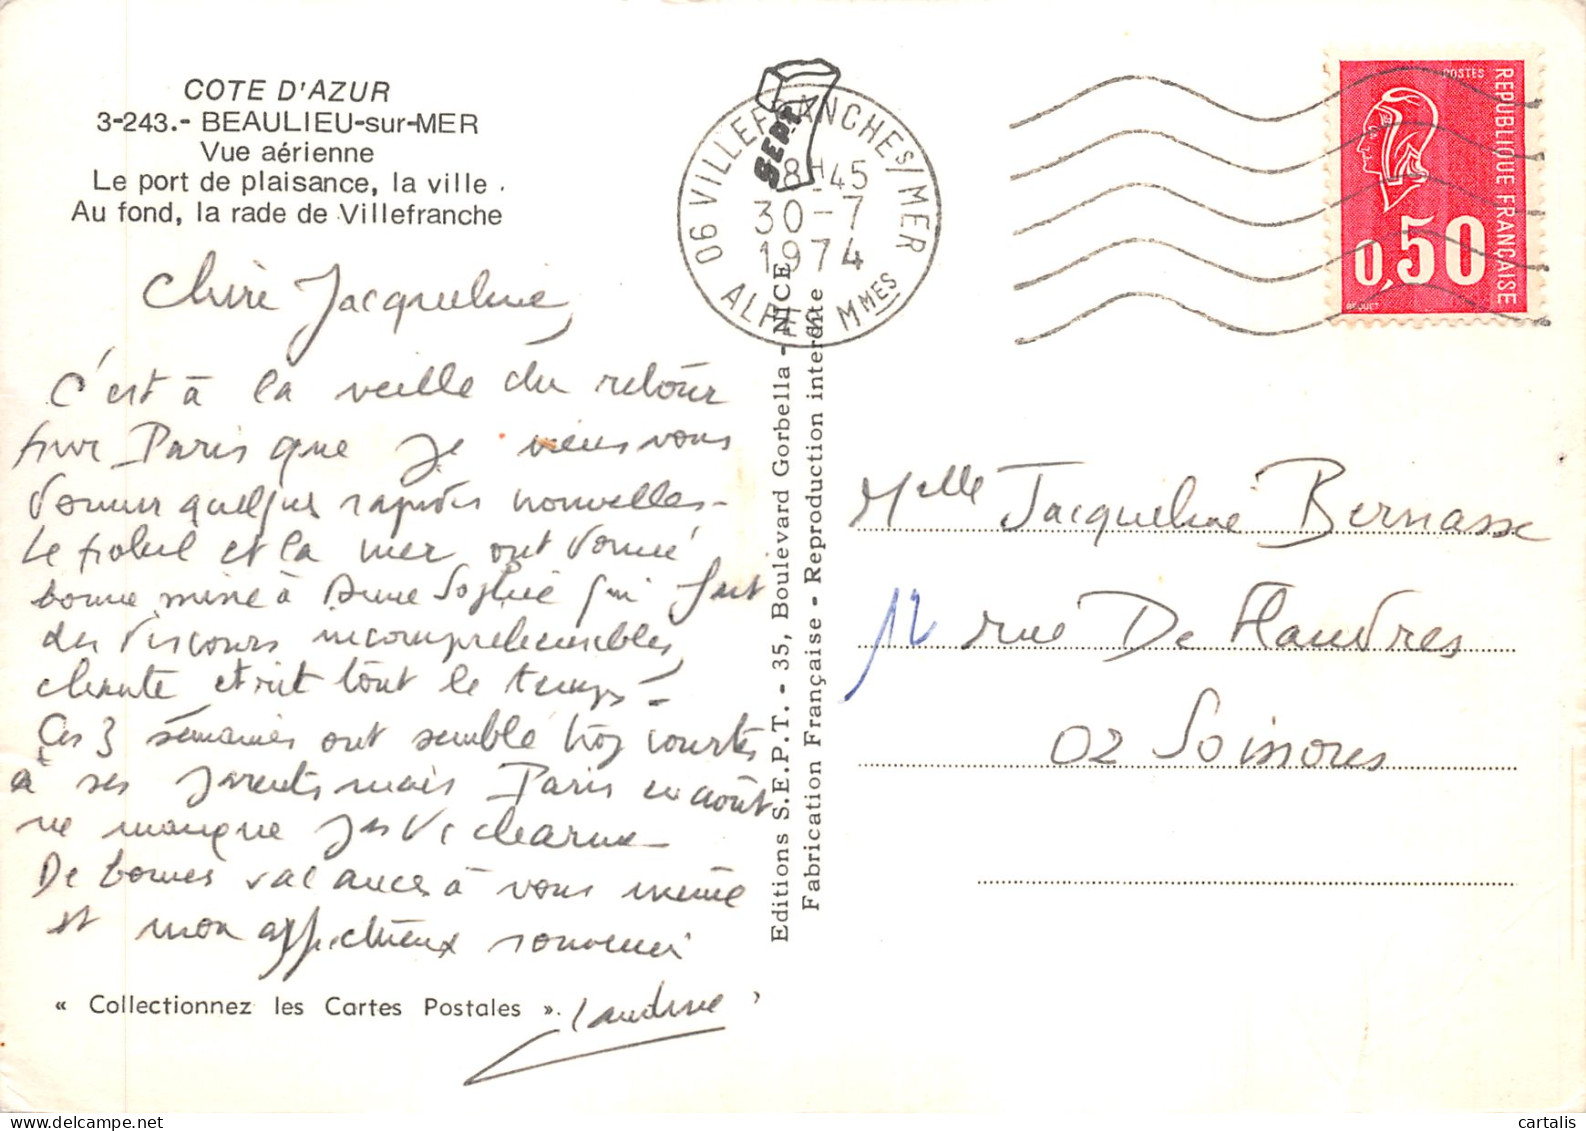 COTE D'AZUR
3-243.- BEAULIEU-sur-MER
Vue aérienne
Le port de plaisance, la ville .
Au fond, la rade de Villefranche
Chère Jacqueline,
C'est à la veille du retour
sur Paris que je viens vous
donner quelques rapides nouvelles-
Le soleil et la mer ont donné
bonne mine à Anne Sophie qui fait
des discours incompréhensibles,
chante et rit tout le temps-
Ces 3 semaines ont semblé trop courtes
à ses parents mais Paris en août
ne manque pas de charme-
De bonnes vacances à vous même
et mon affectueux souvenir
« Collectionnez les Cartes Postales ».
06 VILLEFRANCHE S/ MER
18H45
30-7
1974
ALPES MMES
SEPT
Editions S.E.P.T. - 35, Boulevard Gorbella - NICE
Fabrication Française - Reproduction interdite
POSTES
REPUBLIQUE FRANÇAISE
0,50
BEQUET
Melle Jacqueline Bernasse
12 rue De Flandres
02 Soissons
cartalis